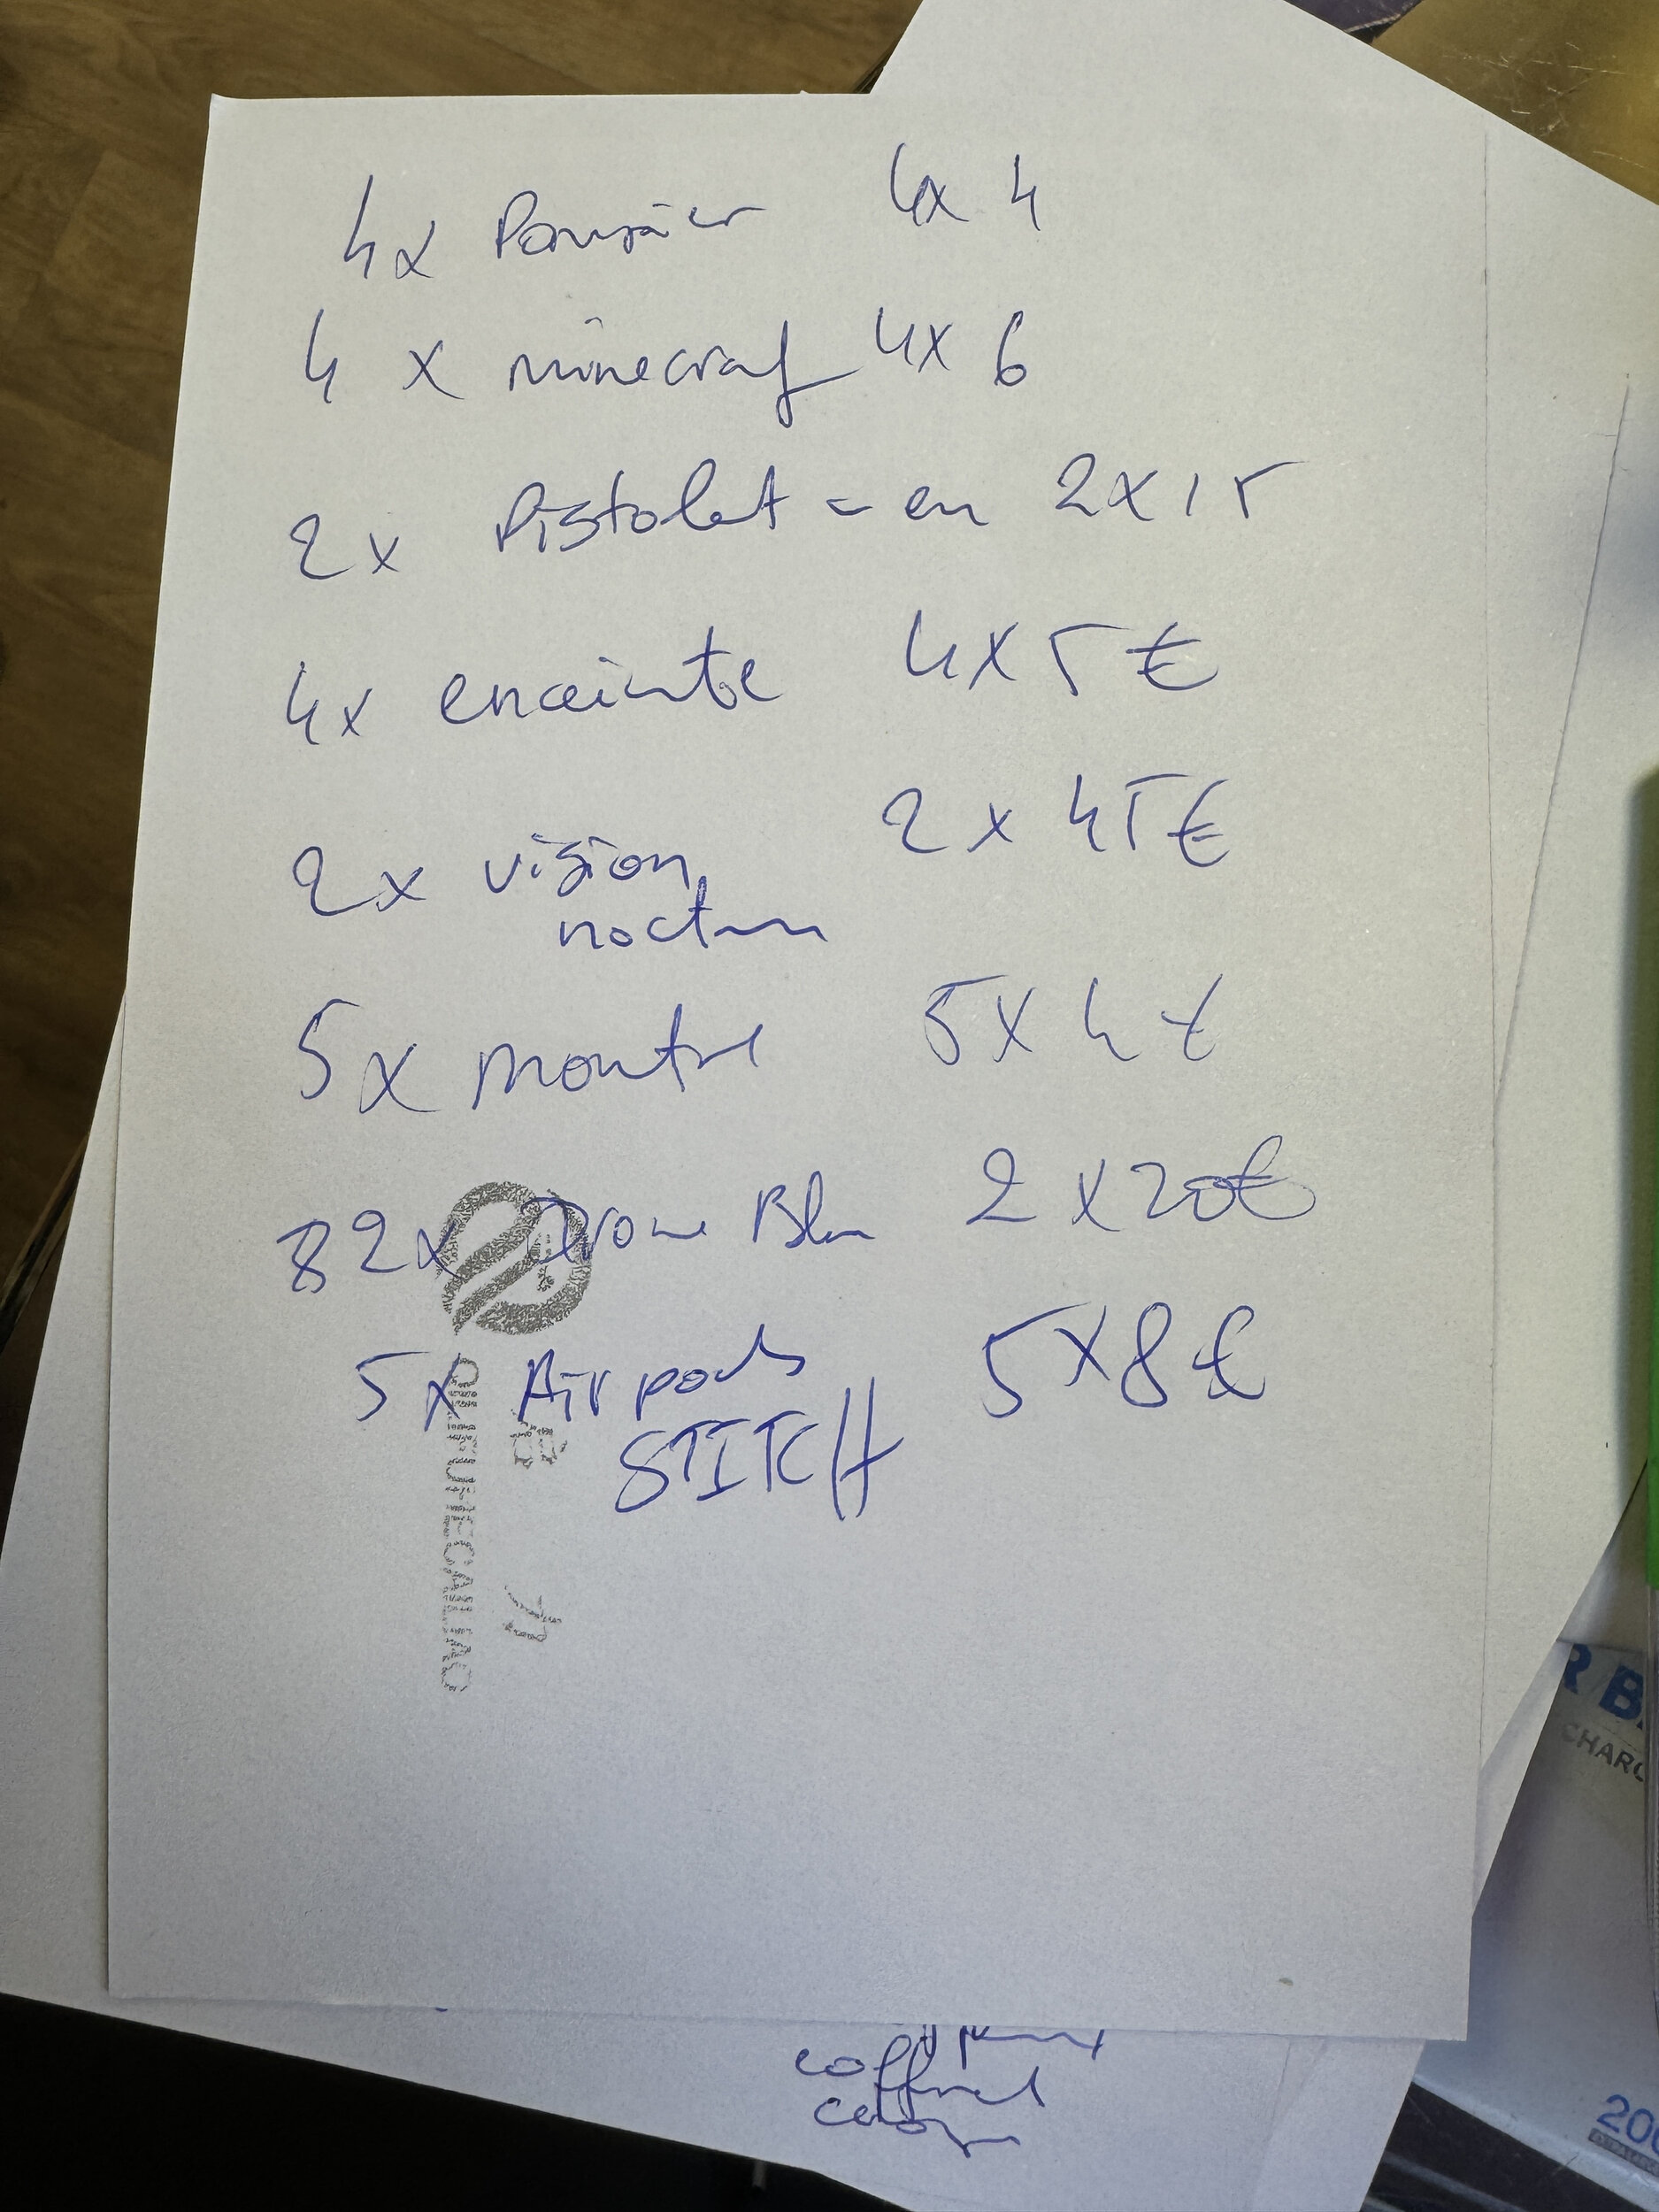 4x Pompier 4x 4
4 x minecraf 4x 6
2x Pistolet = en 2x15
4x enceinte 4x5€
2x vision 2 x 45€
noctu
5x montre 5x4€
8 2x Drone Blu 2 x20€
5x Airpods 5x8€
STITCH
coffret
R/B
CHARG
200